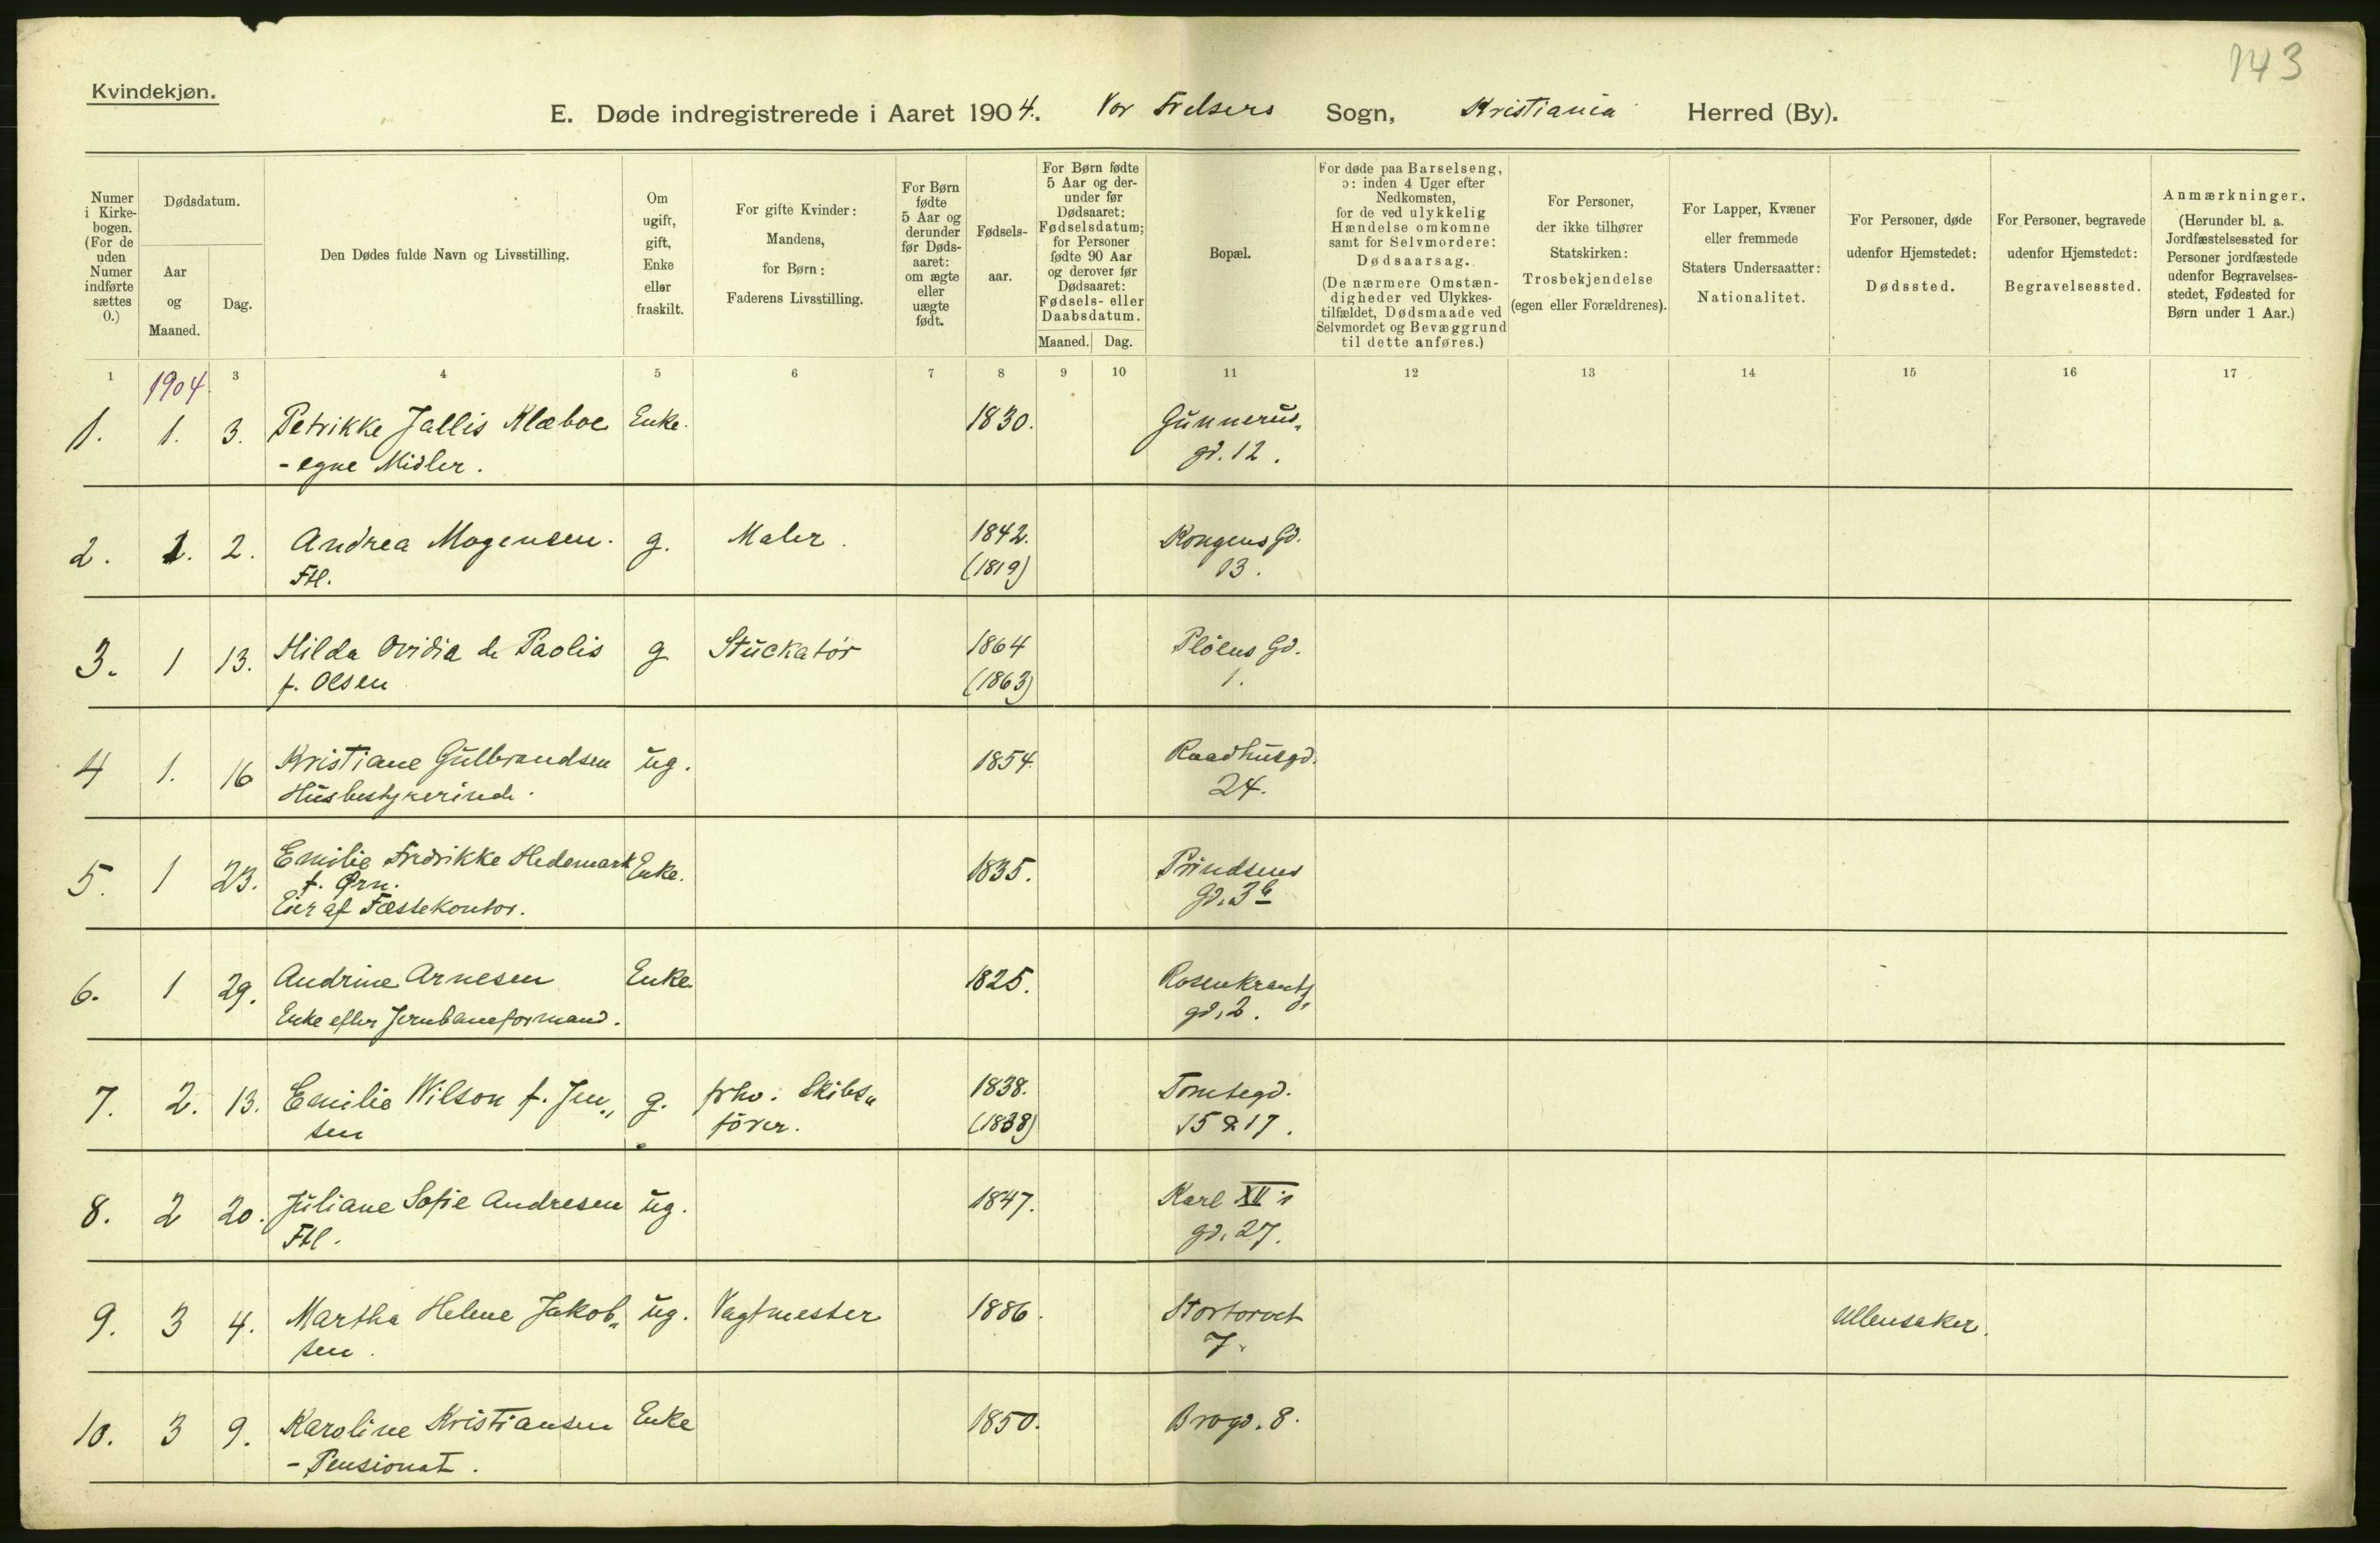 143
Kvindekjøn.
E. Døde indregistrerede i Aaret 1904. Vor Frelsers Sogn, Kristiania Herred (By).
Numer i Kirke-bogen. (For de uden Numer indførte sættes 0.)
Dødsdatum.
Aar og Maaned.
Dag.
Den Dødes fulde Navn og Livsstilling.
Om ugift, gift, Enke eller fraskilt.
For gifte Kvinder: Mandens, for Børn: Faderens Livsstilling.
For Børn fødte 5 Aar og derunder før Døds-aaret: om ægte eller uægte født.
Fødsels-aar.
For Børn fødte 5 Aar og der-under før Dødsaaret: Fødselsdatum; for Personer fødte 90 Aar og derover før Dødsaaret: Fødsels- eller Daabsdatum.
Maaned. Dag.
Bopæl.
For døde paa Barselseng, ɔ: inden 4 Uger efter Nedkomsten, for de ved ulykkelig Hændelse omkomne samt for Selvmordere: Dødsaarsag. (De nærmere Omstæn-digheder ved Ulykkes-tilfældet, Dødsmaade ved Selvmordet og Bevæggrund til dette anføres.)
For Personer, der ikke tilhører Statskirken: Trosbekjendelse (egen eller Forældrenes).
For Lapper, Kvæner eller fremmede Staters Undersaatter: Nationalitet.
For Personer, døde udenfor Hjemstedet: Dødssted.
For Personer, begravede udenfor Hjemstedet: Begravelsessted.
Anmærkninger. (Herunder bl. a. Jordfæstelsessted for Personer jordfæstede udenfor Begravelses-stedet, Fødested for Børn under 1 Aar.)
1 1904 3 4 5 6 7 8 9 10 11 12 13 14 15 16 17
1. 1. 3. Petrikke Jallis Klæboe Enke. 1830. Gunnerus„
- egne Midler. gd. 12.
2. 1. 2. Andrea Mogensen. g. Maler. 1842. Kongens Gd.
Ftl. (1819) 13.
3. 1 13. Hilda Ovidia de Paolis g Stuckatør 1864 Pløens Gd.
f. Olsen (1863) 1.
4 1. 16 Kristiane Gulbrandsen ug. 1854. Raadhusgd.
Husbestyrerinde. 24.
5. 1 23. Emilie Fredrikke Hedemark Enke. 1835. Prindsens
f. Ørn. Gd. 3b
Eier af Fæstekontor.
6. 1 29. Andrine Arnesen Enke 1825. Rosenkrantz„
Enke efter Jernbaneformand. gd. 2.
7. 2. 13. Emilie Wilson f. Jen„ g. frhv. Skibs„ 1838. Tomtegd.
sen fører. (1838) 15 & 17.
8. 2 20. Juliane Sofie Andresen ug. 1847. Karl XII's
Ftl. gd. 27.
9. 3 4. Martha Helene Jakob„ ug. Vagtmester 1886. Stortorvet Ullensaker.
sen. 7.
10. 3 9. Karoline Kristiansen Enke 1850. Brogd. 8.
- Pensionat.